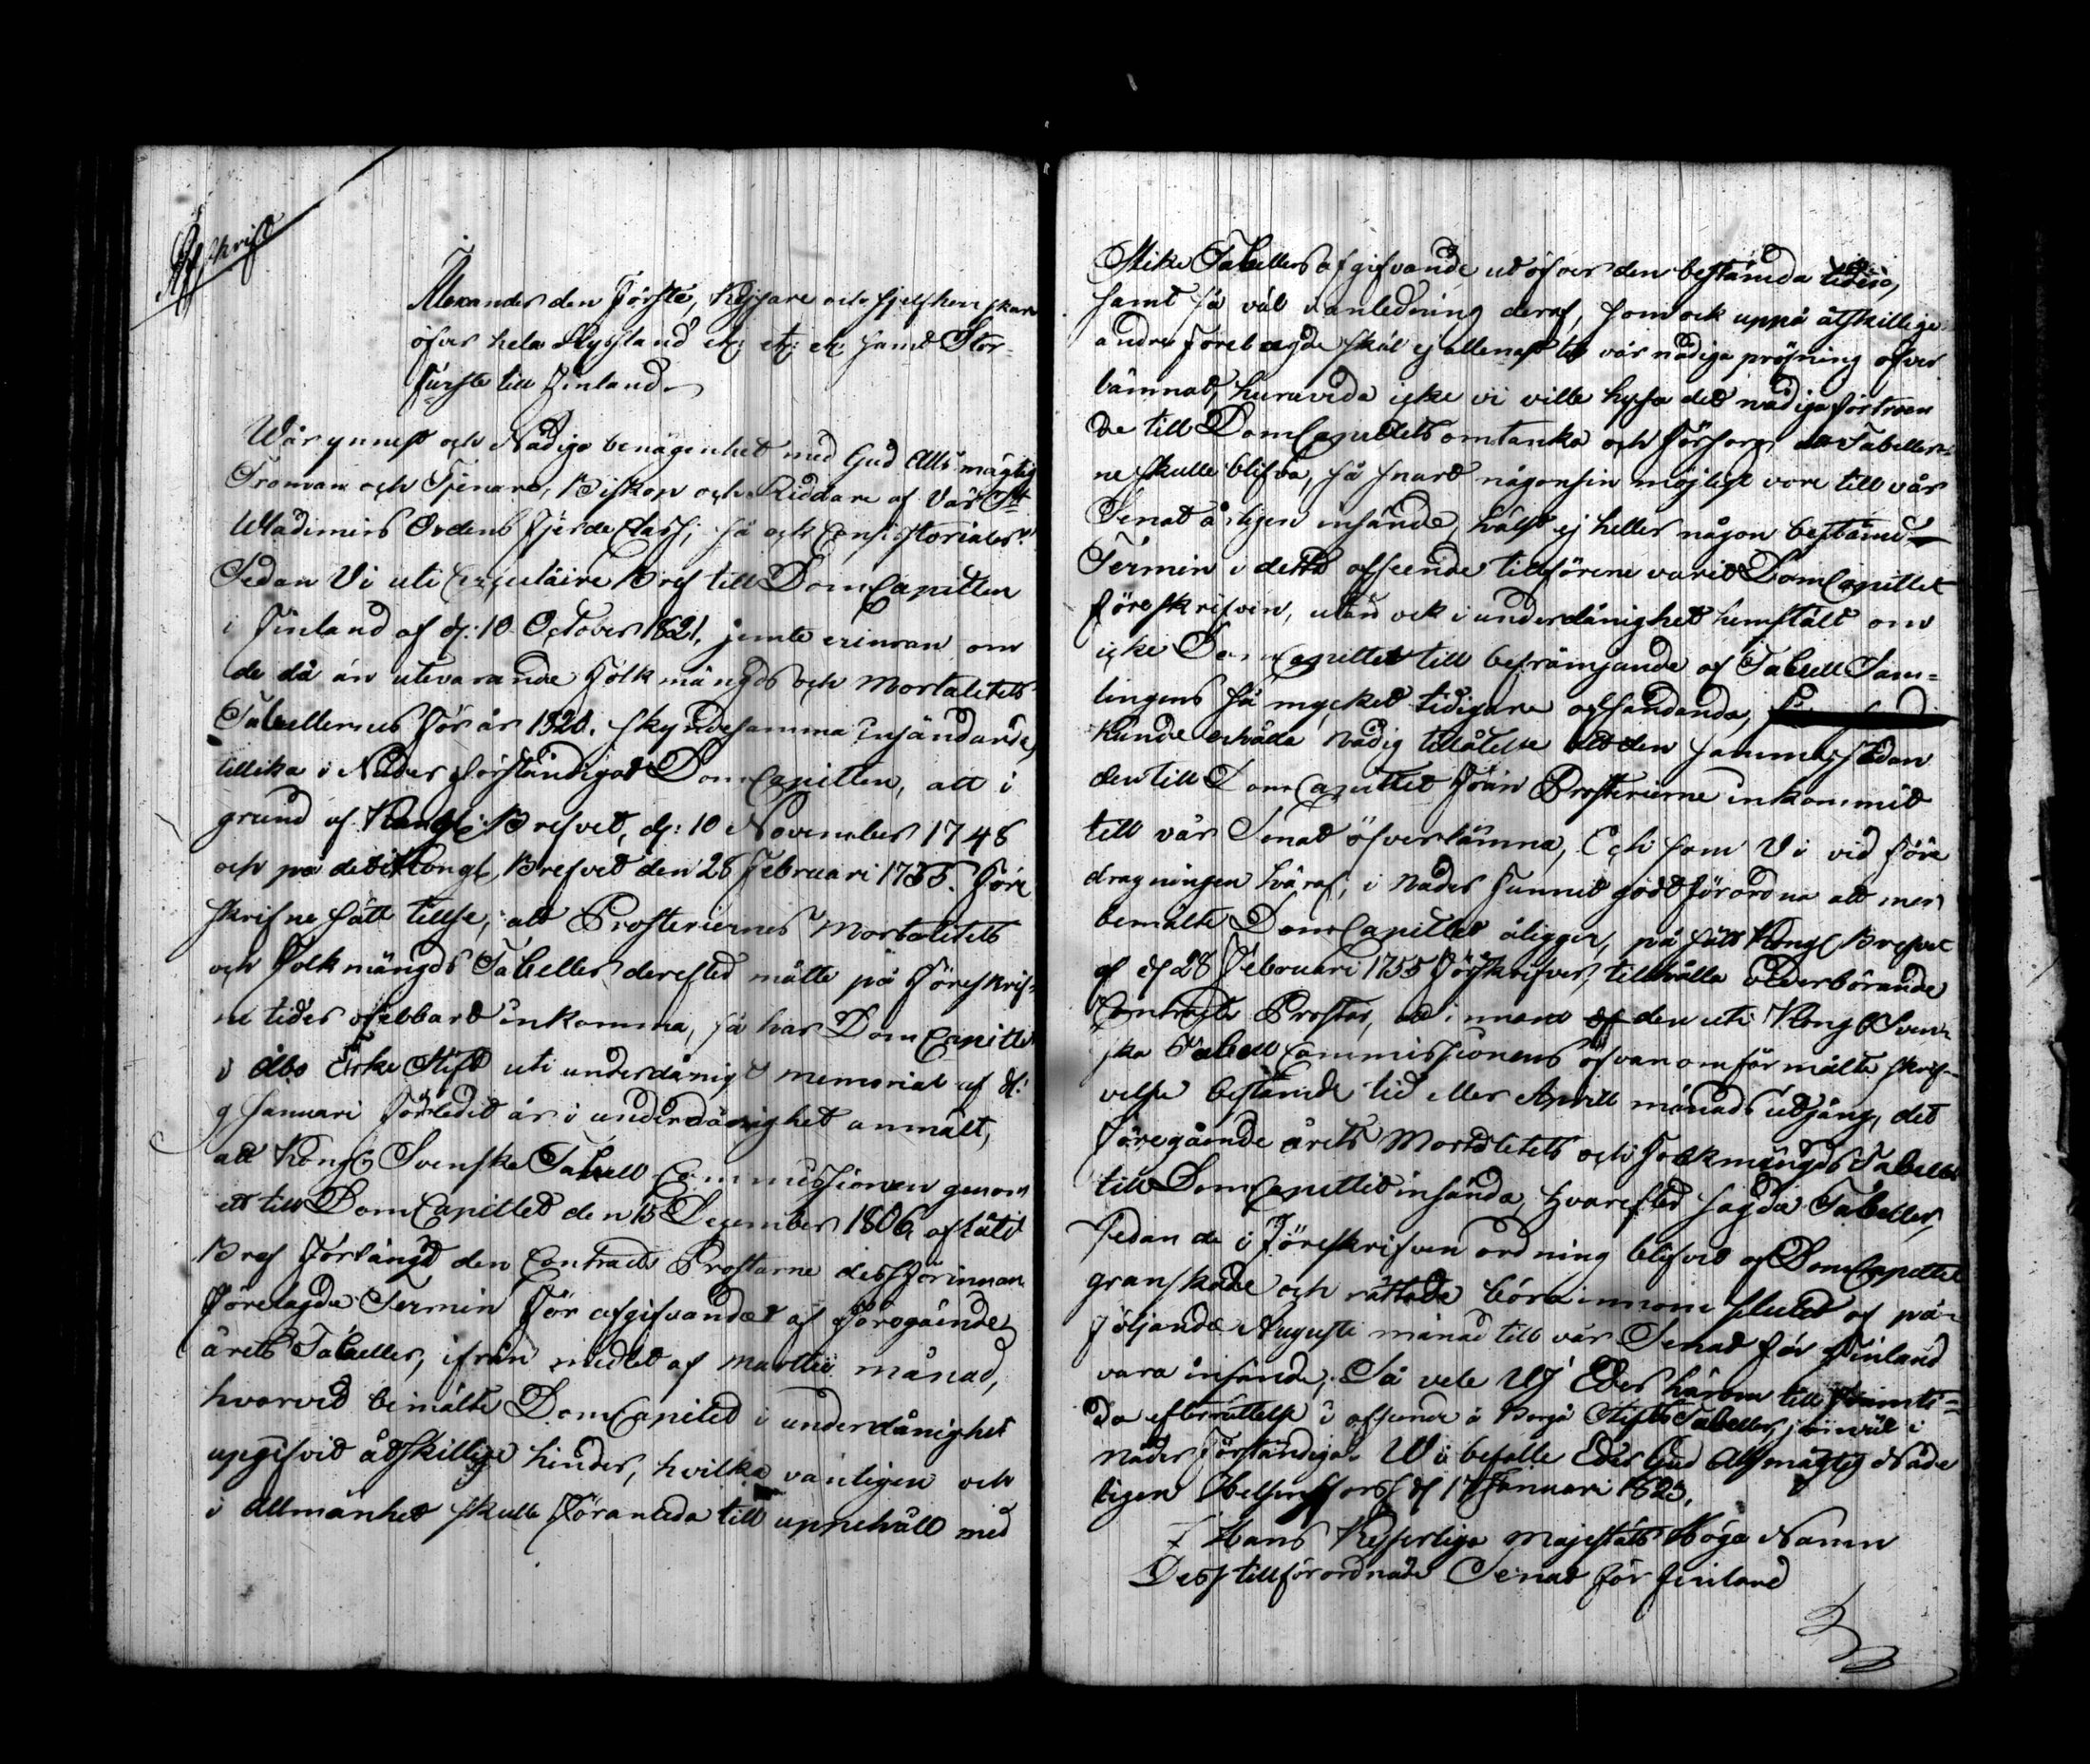 Afskrift
Alexander den Förste, Kejsare och sjelfherrskare
öfver hela Ryssland etc: etc: etc: samt Stor-
Furste till Finland
Vår ynnest och Nådiga benägenhet med Gud Alls mägtig
Troman och Tjenare, Biskop och Riddare af Vår St
Wladimirs Ordens fjerde Class; så och Consistoriales!
Sedan Vi uti Circulaire Bref till DomCapitlen
i Finland af d: 10 October 1821, jemte erinran om
de då än utevarande Folkmängds och Mortalitets
Tabellernes för år 1820. skyndesamma insändande,
tillika i Nåder förständigat DomCapitlen, att i
grund af Kongl: Brefvet, d: 10 November 1748
och på det i Kongl Brefvet den 28 Februari 1755. före
skrifne sätt tillse, att Prosteriernes Mortalitets
och Folkmängds Tabeller derefter måtte på föreskrif-
ne tider ofelbart inkomma, så har DomCapitlet
i Åbo Erke Stift uti underdånigt memorial af d:
9 Januari förledit år i underdånighet anmält,
att Kongl Svenska Tabell Commissionen genom
ett till DomCapitlet den 15 December 1806, aflåtit
Bref förlängt den Contracts Prostarne dessförinnan
förelagde Termin för afgifvandet af föregående
årets Tabeller, ifrån medlet af Martii månad,
hvarvid bemälte DomCapitel i underdånighet
uppgifvit åtskillige hinder, hvilka vanligen och
i Allmänhet skulle föranleda till uppehåll med
slike Tabellers afgifvande utöfver den bestämda tiden,
samt så väl i anledning deraf, som ock uppå åtskillige
andre förebragde skäl ej allenast till vår nådiga pröfning öfver
lämnat, huruvida icke vi ville hysa det nådiga förtroen
de till DomCapitlets omtanka och försorg, att Tabeller
ne skulle blifva, så snart någonsin möjligt vore till vår
Senat årligen insände, hälst ej heller någon bestämd
Termin i detta afseende tillförene varit DomCapitlet
föreskrifven, utan ock i underdånighet hemstält om
icke DomCapitlet till befrämjande af Tabell Sam-
lingens så mycket tidigare afsändande,
kunde erhålla Nådig tillåtelse att den samma, sedan
den till DomCapitlet från Prosterierne inkommit
till vår Senat öfverlämna, Och som Vi vid före
dragningen häraf, i Nåder funnit godt förordna att mer
bemälte DomCapitlet åligger, på sätt Kongl Brefvet
af d 28 Februari 1755 föreskrifver, tillhålla vederbörande
Contracts Prostar, att innom den uti Kongl Sven-
ska Tabell Commissionens ofvanomförmälte skrif-
velse bestämde tid eller April månads utgång, det
föregående årets Mortalitets och Folkmängds Tabeller
till DomCapitlet insända, hvarefter sagde Tabeller,
sedan de i föreskrifven ordning blifvit af DomCapitlet
granskade och rättade böra innom slutet af på-
följande Augusti månad till vår Senat för Finland
vara insände; Så vele Vi Eder härom till framti-
da efterrättelse i afseende å Borgå Stifts Tabeller, jämväl i
nåder förständiga. Vi befalle Eder Gud Allsmägtig Nåde
ligen Helsingfors d 17 Januari 1823.
I Hans Kejserliga Majestäts Höga Namn
Dess tillförordnade Senat för Finland